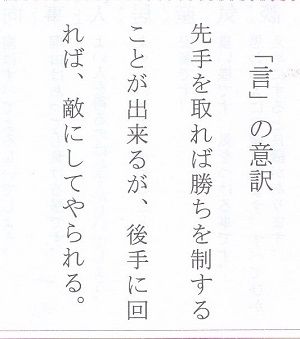 「言」の意訳
先手を取れば勝ちを制する
ことが出来るが、後手に回
れば、敵にしてやられる。